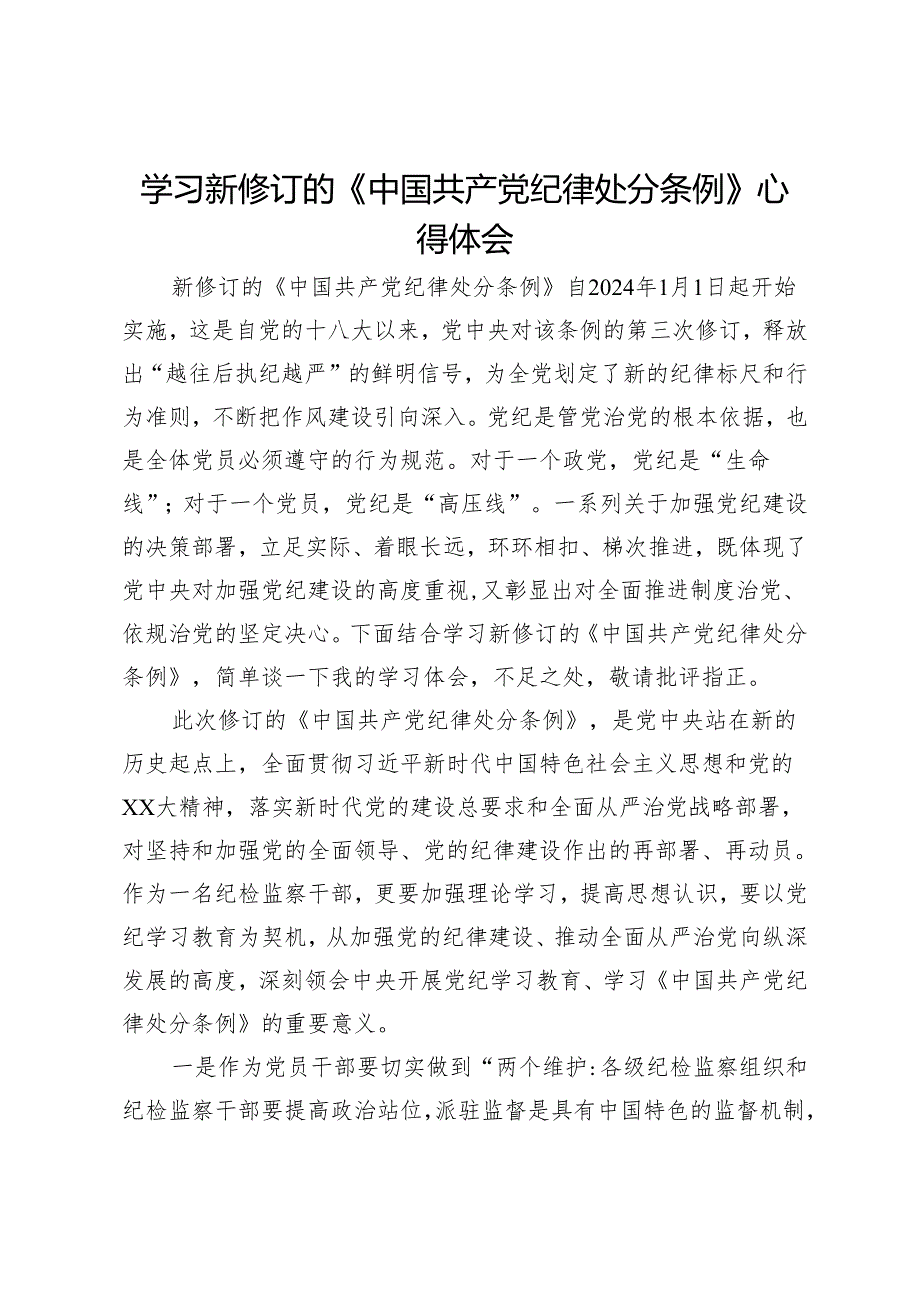 学习新修订的《中国共产党纪律处分条例》心
得体会
新修订的《中国共产党纪律处分条例》自2024年1月1日起开始
实施，这是自党的十八大以来，党中央对该条例的第三次修订，释放
出“越往后执纪越严”的鲜明信号，为全党划定了新的纪律标尺和行
为准则，不断把作风建设引向深入。党纪是管党治党的根本依据，也
是全体党员必须遵守的行为规范。对于一个政党，党纪是“生命
线”；对于一个党员，党纪是“高压线”。一系列关于加强党纪建设
的决策部署，立足实际、着眼长远，环环相扣、梯次推进，既体现了
党中央对加强党纪建设的高度重视,又彰显出对全面推进制度治党、
依规治党的坚定决心。下面结合学习新修订的《中国共产党纪律处分
条例》，简单谈一下我的学习体会，不足之处，敬请批评指正。
此次修订的《中国共产党纪律处分条例》，是党中央站在新的
历史起点上，全面贯彻习近平新时代中国特色社会主义思想和党的
XX大精神，落实新时代党的建设总要求和全面从严治党战略部署，
对坚持和加强党的全面领导、党的纪律建设作出的再部署、再动员。
作为一名纪检监察干部，更要加强理论学习，提高思想认识，要以党
纪学习教育为契机，从加强党的纪律建设、推动全面从严治党向纵深
发展的高度，深刻领会中央开展党纪学习教育、学习《中国共产党纪
律处分条例》的重要意义。
一是作为党员干部要切实做到“两个维护:各级纪检监察组织和
纪检监察干部要提高政治站位,派驻监督是具有中国特色的监督机制,